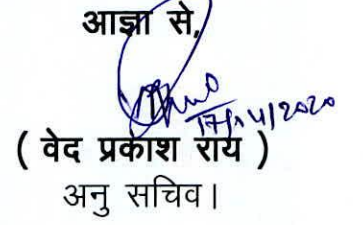 आज्ञा से,
17/04/2020
( वेद प्रकाश राय )
अनु सचिव।